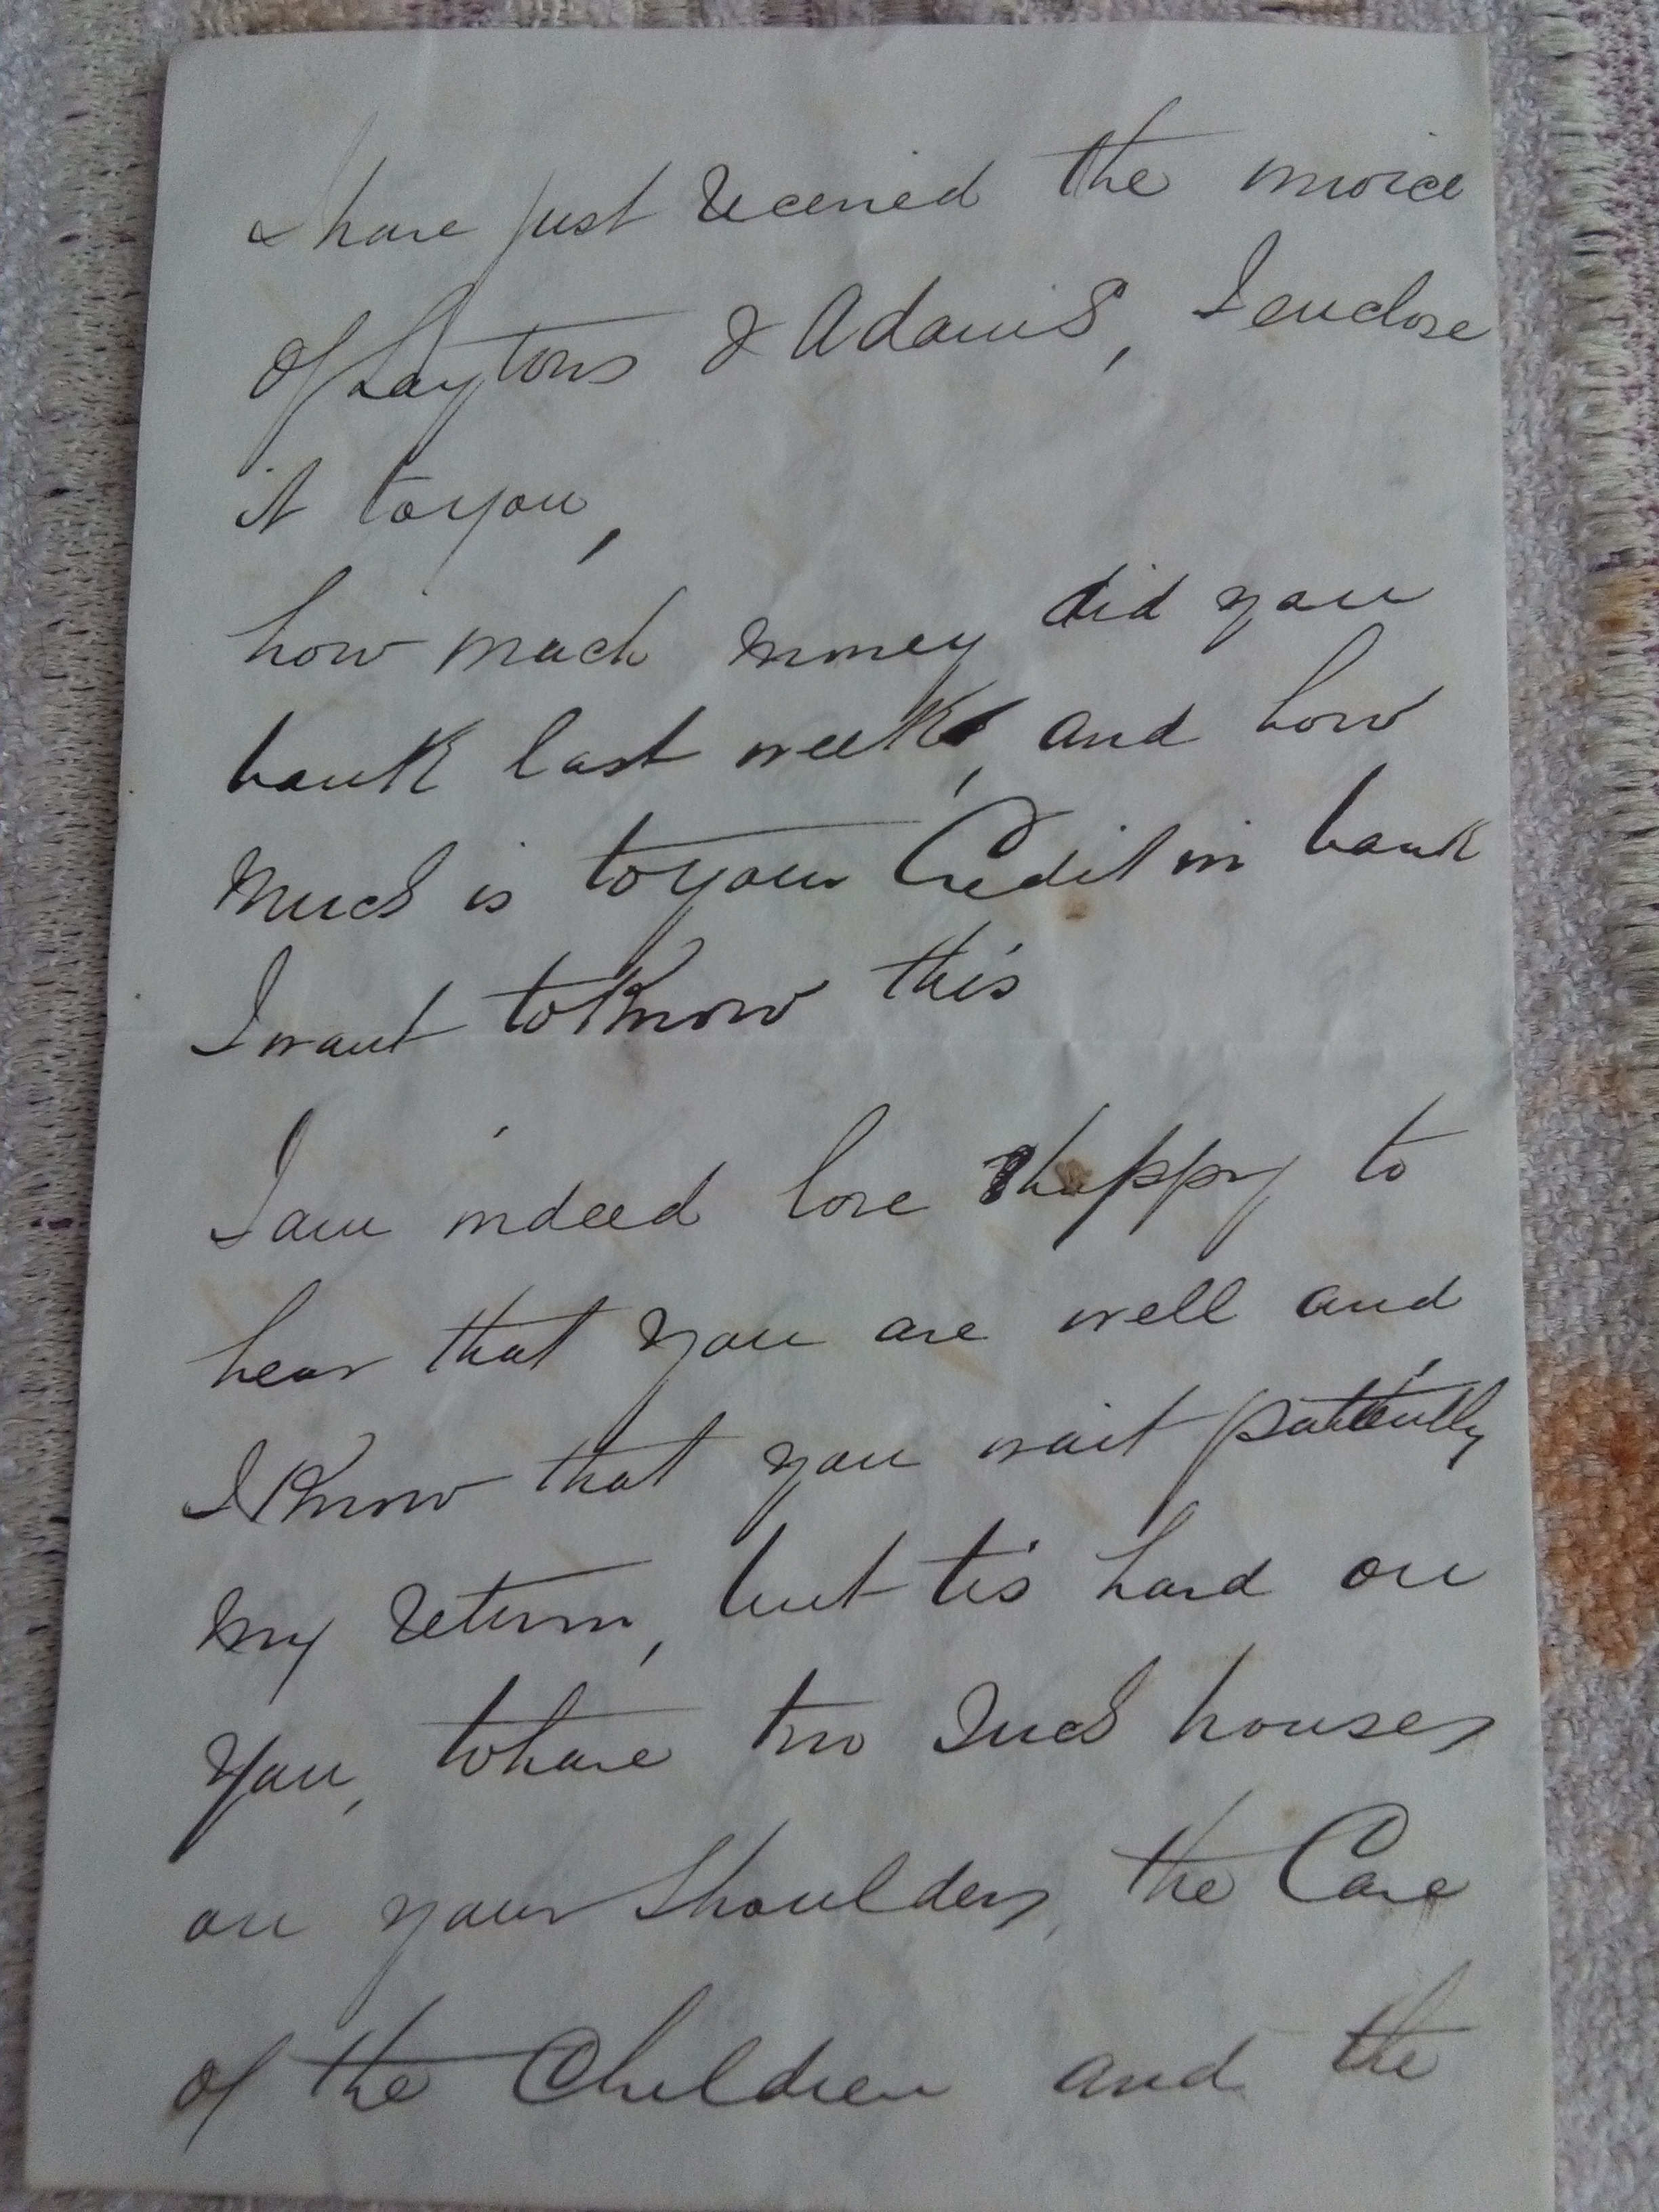 I have just received the invoice
of Laytons & Adams, I enclose
it to you,
how much money did you
bank last week, and how
much is to your Credit in bank
I want to know this
I am indeed love happy to
hear that you are well and
I know that you wait patiently
my return, but tis hard on
you, to have two such houses
on your shoulders, the Care
of the Children and the